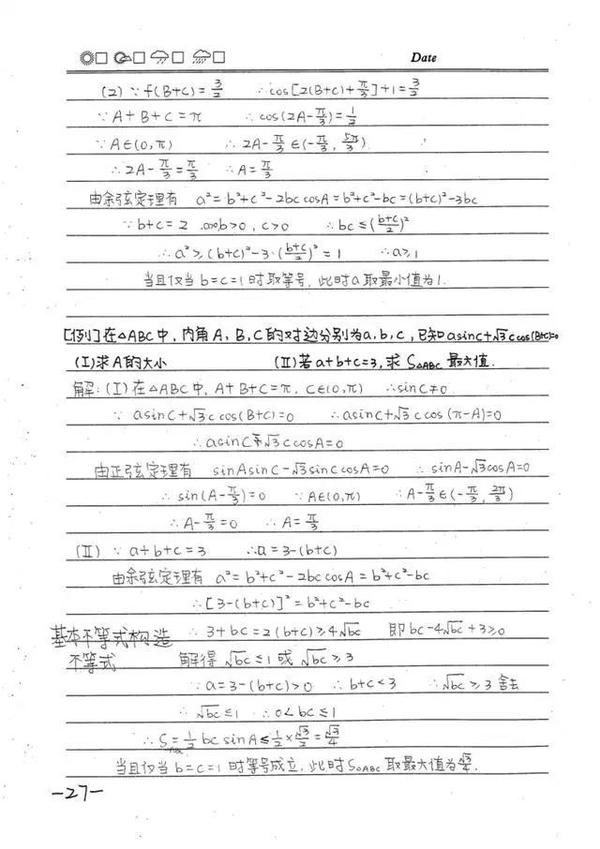 Date
(2) ∵ f(B+C)=3/2 ∴cos[2(B+C)+π/3]+1=3/2
∵A+B+C=π ∴cos(2A-π/3)=1/2
∵A∈(0,π) ∴2A-π/3∈(-π/3,5π/3)
∴2A-π/3=π/3 ∴A=π/3
由余弦定理有 a²=b²+c²-2bccosA=b²+c²-bc=(b+c)²-3bc
∵b+c=2 b>0,c>0 ∴bc≤((b+c)/2)²
∴a²≥(b+c)²-3·((b+c)/2)²=1 ∴a≥1
当且仅当b=c=1时取等号,此时a取最小值为1.
[例]在△ABC中,内角A,B,C的对边分别为a,b,c,已知asinC+√3ccos(B+C)=0
(I)求A的大小 (II)若a+b+c=3,求S△ABC最大值.
解:(I)在△ABC中,A+B+C=π,C∈(0,π) ∴sinC≠0
∵ asinC+√3ccos(B+C)=0 ∴asinC+√3ccos(π-A)=0
∴asinC-√3ccosA=0
由正弦定理有 sinAsinC-√3sinCcosA=0 ∴sinA-√3cosA=0
∴sin(A-π/3)=0 ∵A∈(0,π) ∴A-π/3∈(-π/3,2π/3)
∴A-π/3=0 ∴A=π/3
(II) ∵a+b+c=3 ∴a=3-(b+c)
由余弦定理有 a²=b²+c²-2bccosA=b²+c²-bc
∴[3-(b+c)]²=b²+c²-bc
基本不等式构造 ∴3+bc=2(b+c)≥4√bc 即bc-4√bc+3≥0
不等式 解得√bc≤1或√bc≥3
∵a=3-(b+c)>0 ∴b+c<3 ∴√bc≥3舍去
∴√bc≤1 ∴0<bc≤1
∴S=1/2bcsinA≤1/2×√3/2=√3/4
当且仅当b=c=1时等号成立,此时S△ABC取最大值为√3/4.
-27-